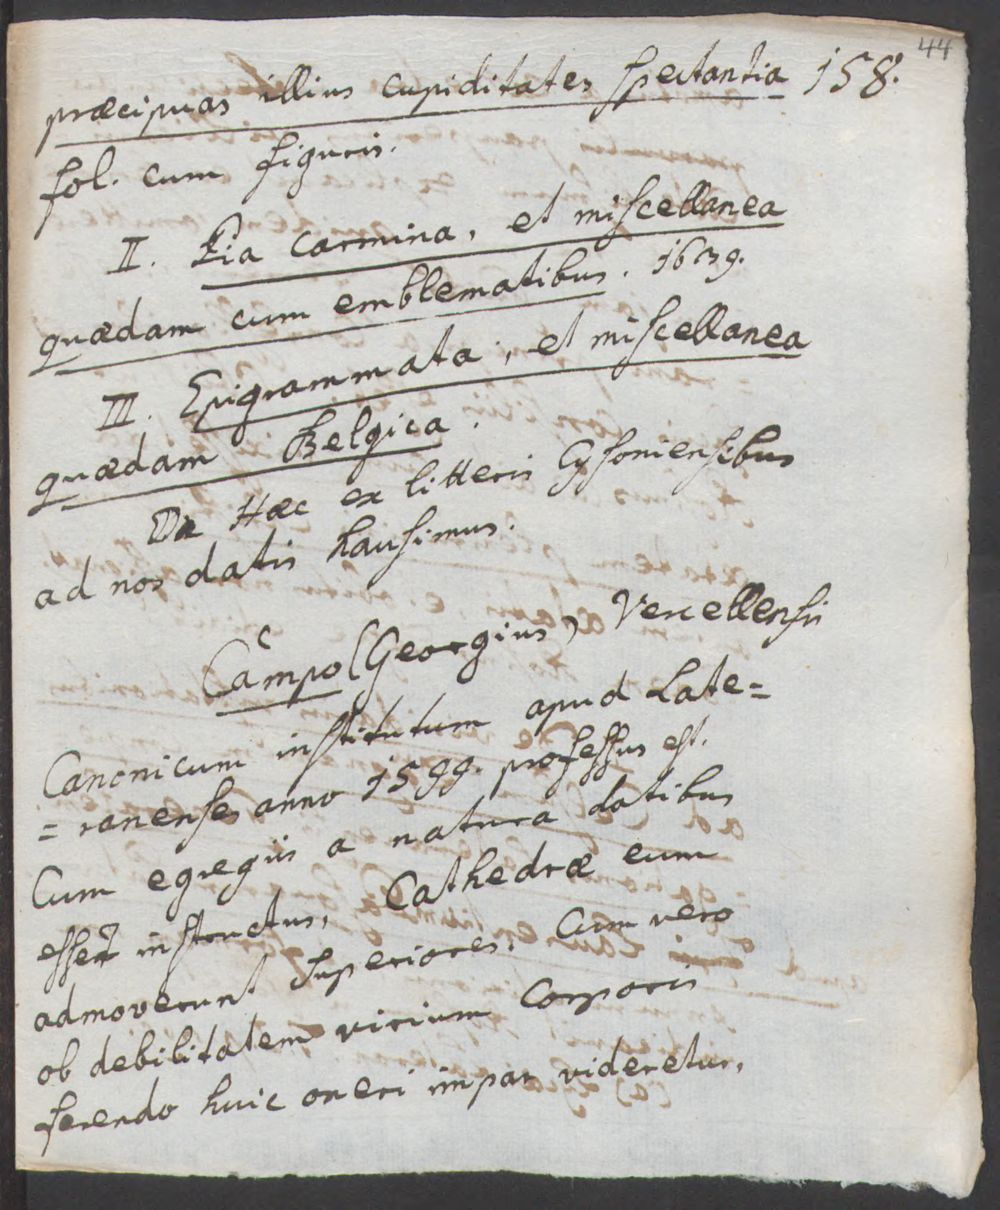 44
præcipuas illius cupiditates spectantia 158.
fol. cum figuris.
II. Pia carmina, et miscellanea
quædam cum emblematibus. 1639.
III. Epigrammata, et miscellanea
quædam Belgica.
Hæc ex litteris Cysoniensibus
ad nos datis hausimus.
Campo (Georgius) Vercellensis
Canonicum institutum apud Late=
=ranenses anno 1599. professus est.
Cum egregiis a natura dotibus
esset instructus, Cathedræ eum
admoverunt superiores. Cum vero
ob debilitatem virium corporis
ferendo huic oneri impar videretur,